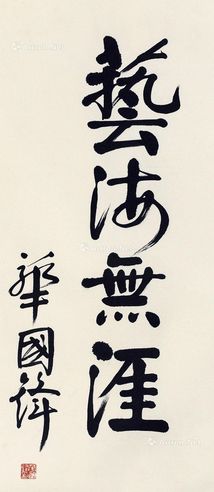 藝海無涯
華國鋒